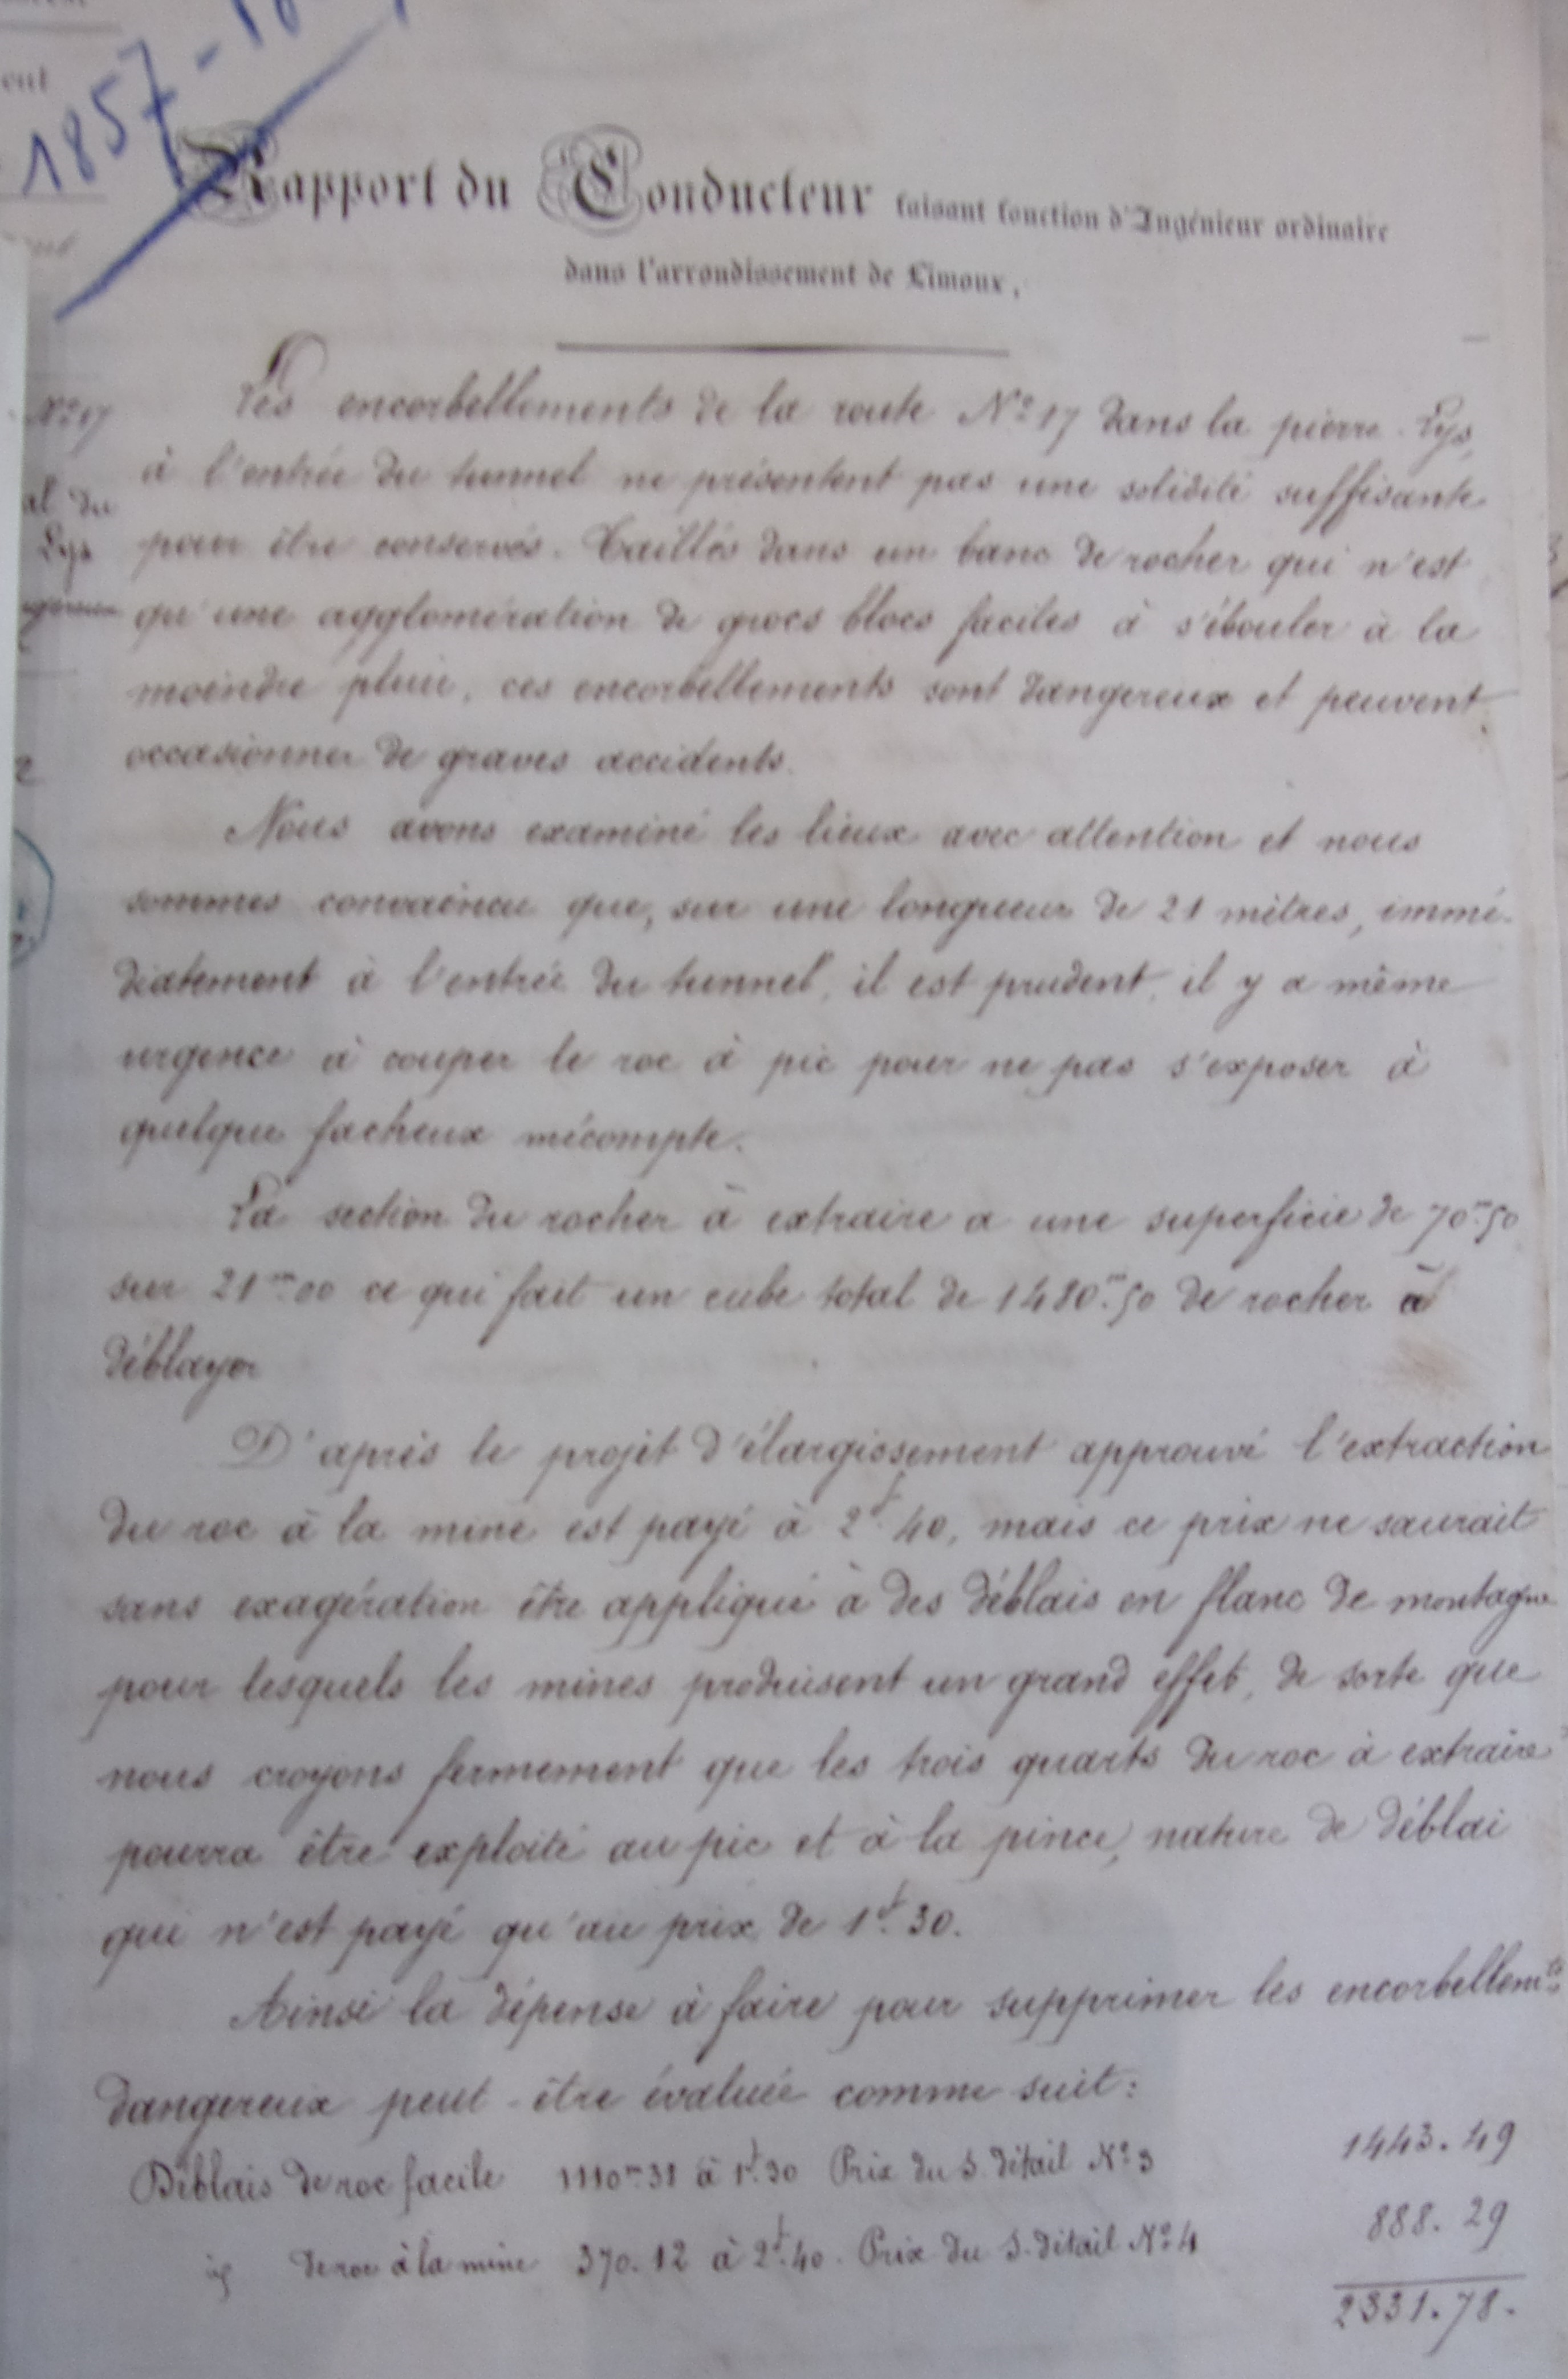 1857-18
ent
Rapport du Conducteur faisant fonction d'Ingénieur ordinaire
dans l'arrondissement de Limoux,
Nº 17
al du
Lys
2
Les encorbellements de la route Nº 17 dans la pierre-Lys,
à l'entrée du tunnel ne présentent pas une solidité suffisante
pour être conservés. Taillés dans un banc de rocher qui n'est
qu'une agglomération de gros blocs faciles à s'ébouler à la
moindre pluie, ces encorbellements sont dangereux et peuvent
occasionner de graves accidents.
Nous avons examiné les lieux avec attention et nous
sommes convaincu que, sur une longueur de 21 mètres, immé-
diatement à l'entrée du tunnel, il est prudent, il y a même
urgence à couper le roc à pic pour ne pas s'exposer à
quelque facheux mécompte.
La section du rocher à extraire a une superficie de 70m.50
sur 21m.00 ce qui fait un cube total de 1480m.50 de rocher à
déblayer
D'après le projet d'élargissement approuvé l'extraction
du roc à la mine est payé à 2f.40, mais ce prix ne saurait
sans exagération être appliqué à des déblais en flanc de montagne
pour lesquels les mines produisent un grand effet, de sorte que
nous croyons fermement que les trois quarts du roc à extraire
pourra être exploité au pic et à la pince, nature de déblai
qui n'est payé qu'au prix de 1f.30.
Ainsi la dépense à faire pour supprimer les encorbellemts
dangereux peut-être évaluée comme suit:
Déblais de roc facile 1110m.31 à 1f.30 Prix du S. détail Nº 3 1443.49
id de roc à la mine 370.12 à 2f.40. Prix du S. détail Nº 4 888.29
2331.78.